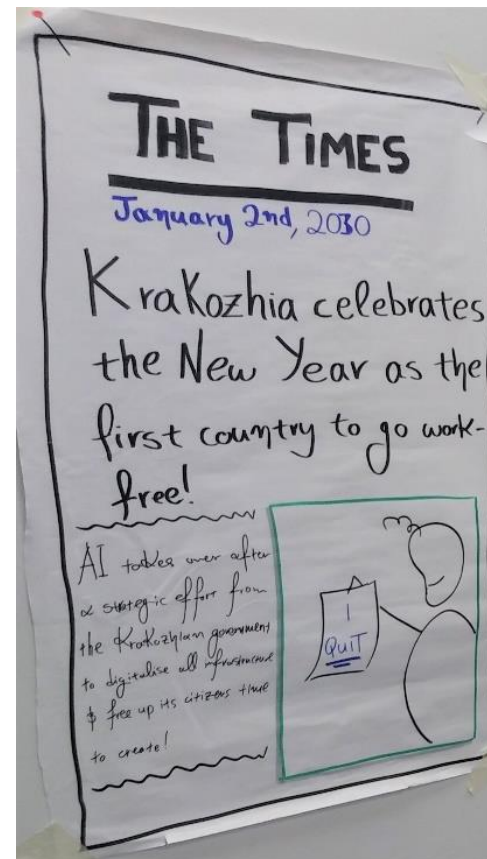 THE TIMES
January 2nd, 2030
Krakozhia celebrates
the New Year as the
first country to go work-
free!
AI takes over after
a strategic effort from
the Krakozhian government
to digitalise all infrastructure
& free up its citizens time
to create!
I
QUIT